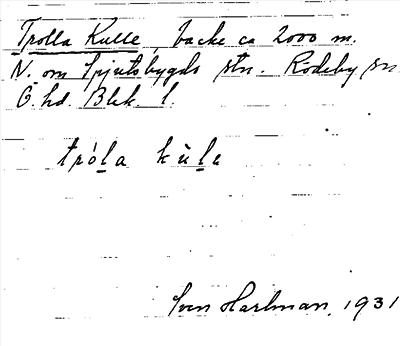 Trolla Kulle, backe ca 2000 m.
N. om Spjutsbygds stn. Rödeby sn.
Ö. hd. Blek. l.
tròl̲a kùl̲e
Sven Harlman, 1931